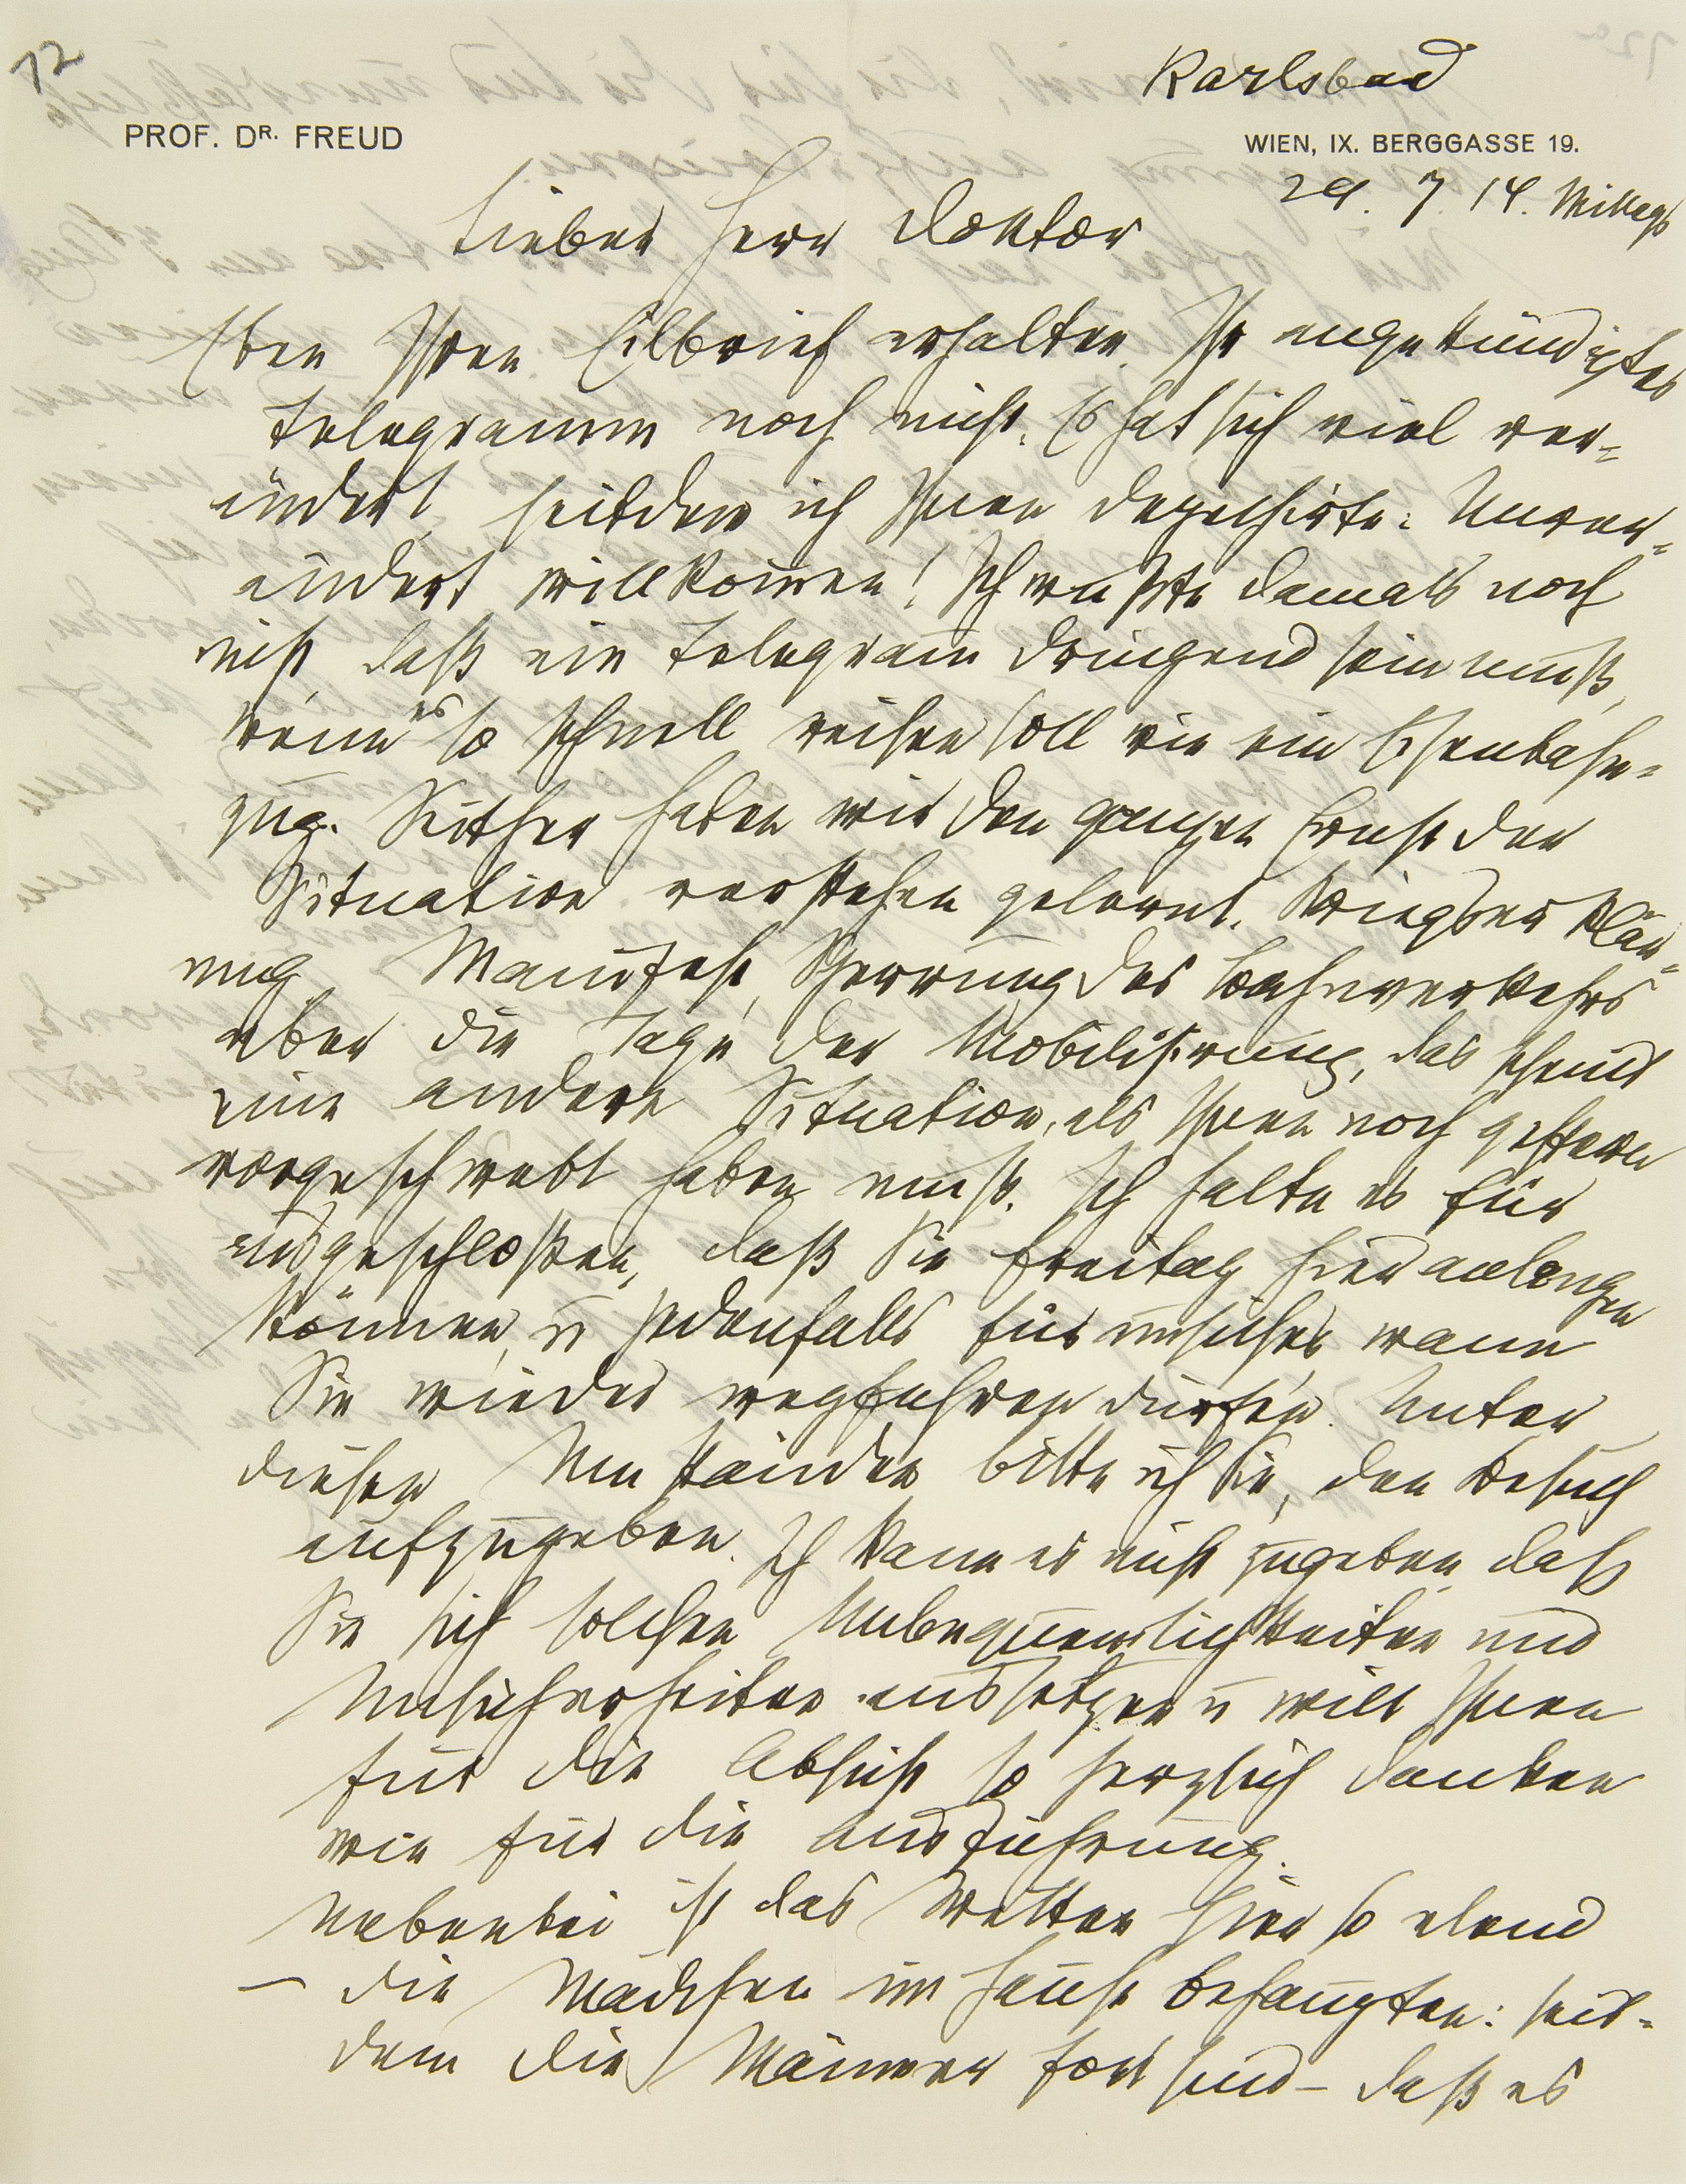 72
Karlsbad
PROF. DR. FREUD
WIEN, IX. BERGGASSE 19.
29. 7. 14. Mittags
Lieber Herr Doktor
Eben Ihren Eilbrief erhalten. Ihr angekündigtes
Telegramm noch nicht. Es hat sich viel ver=
ändert, seitdem ich Ihnen depeschirte: Unver=
ändert willkom̅en! Ich wußte damals noch
nicht, daß ein Telegram̅ dringend sein muß,
wenn es so schnell reisen soll wie ein Eisenbahn=
zug. Seither haben wir den ganzen Ernst der
Situation verstehen gelernt. Kriegserklär=
ung, Manifest, Sperrung des Bahnverkehrs
über die Tage der Mobilisirung, das scheint
eine andere Situation, als Ihnen noch gestern
vorgeschwebt haben muß. Ich halte es für
ausgeschloßen, daß Sie Freitag hier anlangen
können, u jedenfalls für unsicher wann
Sie wieder wegfahren dürfen. Unter
diesen Umständen bitte ich Sie, den Besuch
aufzugeben. Ich kann es nicht zugeben, daß
Sie sich solchen Unbequemlichkeiten und
Unsicherheiten aussetzen u will Ihnen
für die Absicht so herzlich danken
wie für die Ausführung.
Nebenbei ist das Wetter hier so elend
— die Mädchen im Hause behaupten: seit=
dem die Männer fort sind — daß es